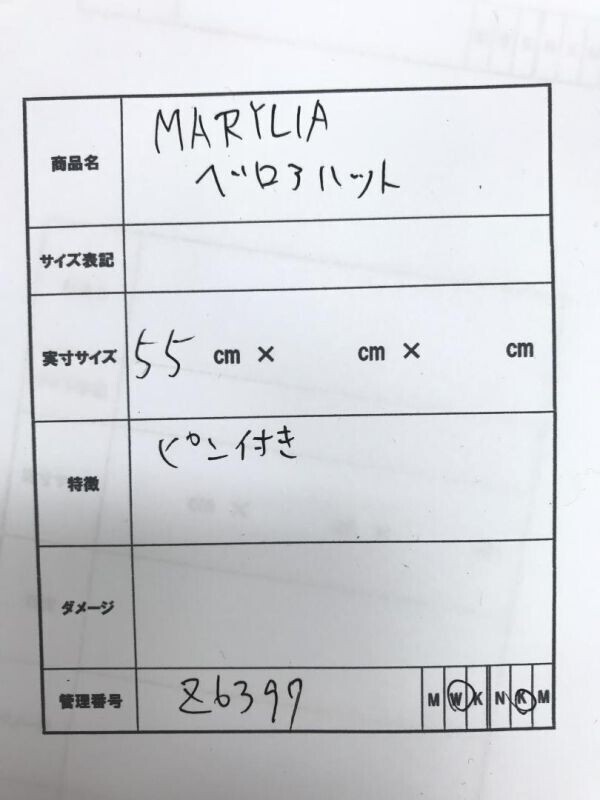 商品名 MARYLIA
ベロアハット
サイズ表記
実寸サイズ 55 cm × cm × cm
特徴 ピン付き
ダメージ
管理番号 Z6397 M W K N K M